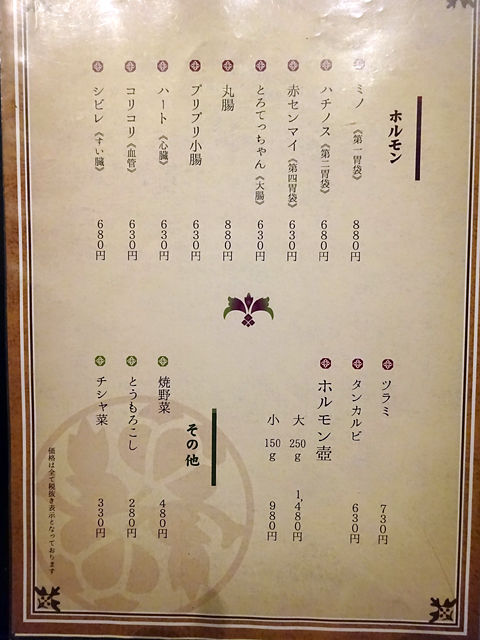 ホルモン
ミノ 《第一胃袋》 880円
ハチノス 《第二胃袋》 680円
赤センマイ 《第四胃袋》 630円
とろてっちゃん 《大腸》 630円
丸腸 880円
プリプリ小腸 630円
ハート 《心臓》 630円
コリコリ 《血管》 630円
シビレ 《すい臓》 680円
ツラミ 730円
タンカルビ 630円
ホルモン壺
大 250g 1,480円
小 150g 980円
その他
焼野菜 480円
とうもろこし 280円
チシャ菜 330円
価格は全て税抜き表示となっております